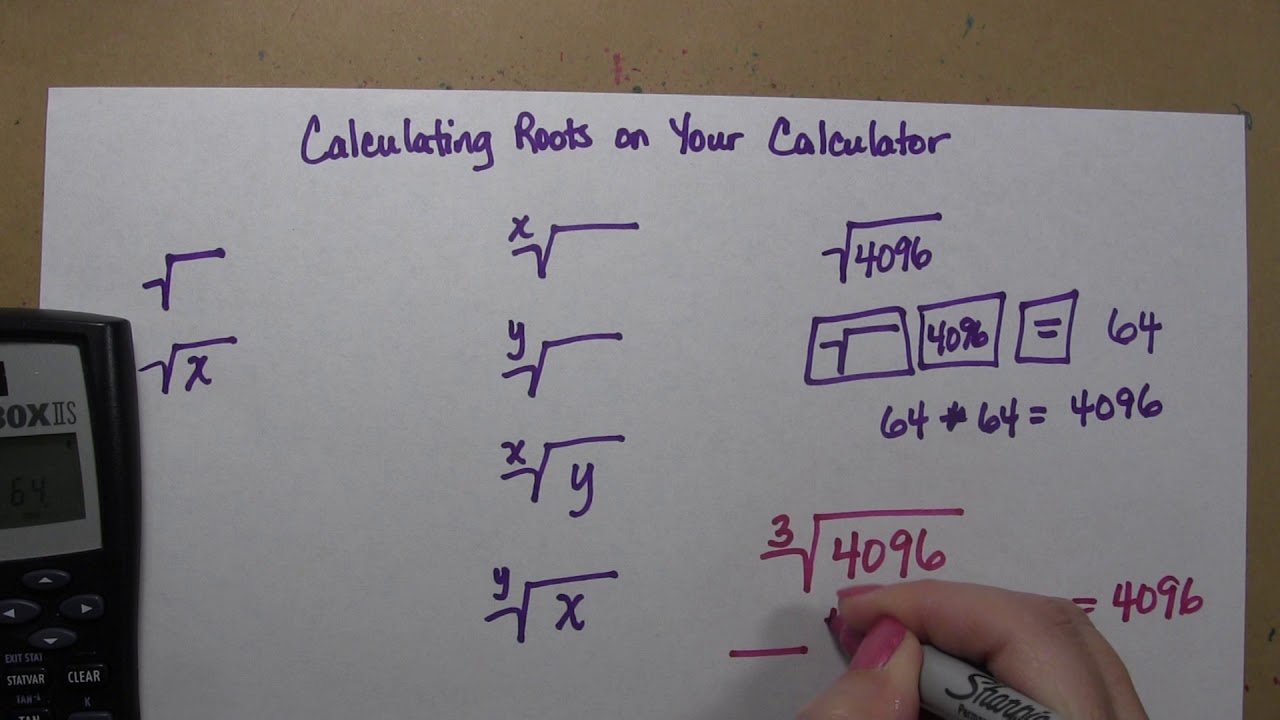 Calculating Roots on Your Calculator
√
√x
x√
y√
x√y
y√x
√4096
√ 4096 = 64
64 * 64 = 4096
3√4096
= 4096
BOX IIS
64
EXIT STAT
STATVAR CLEAR
TAN⁻¹ K
TAN
Sharpie